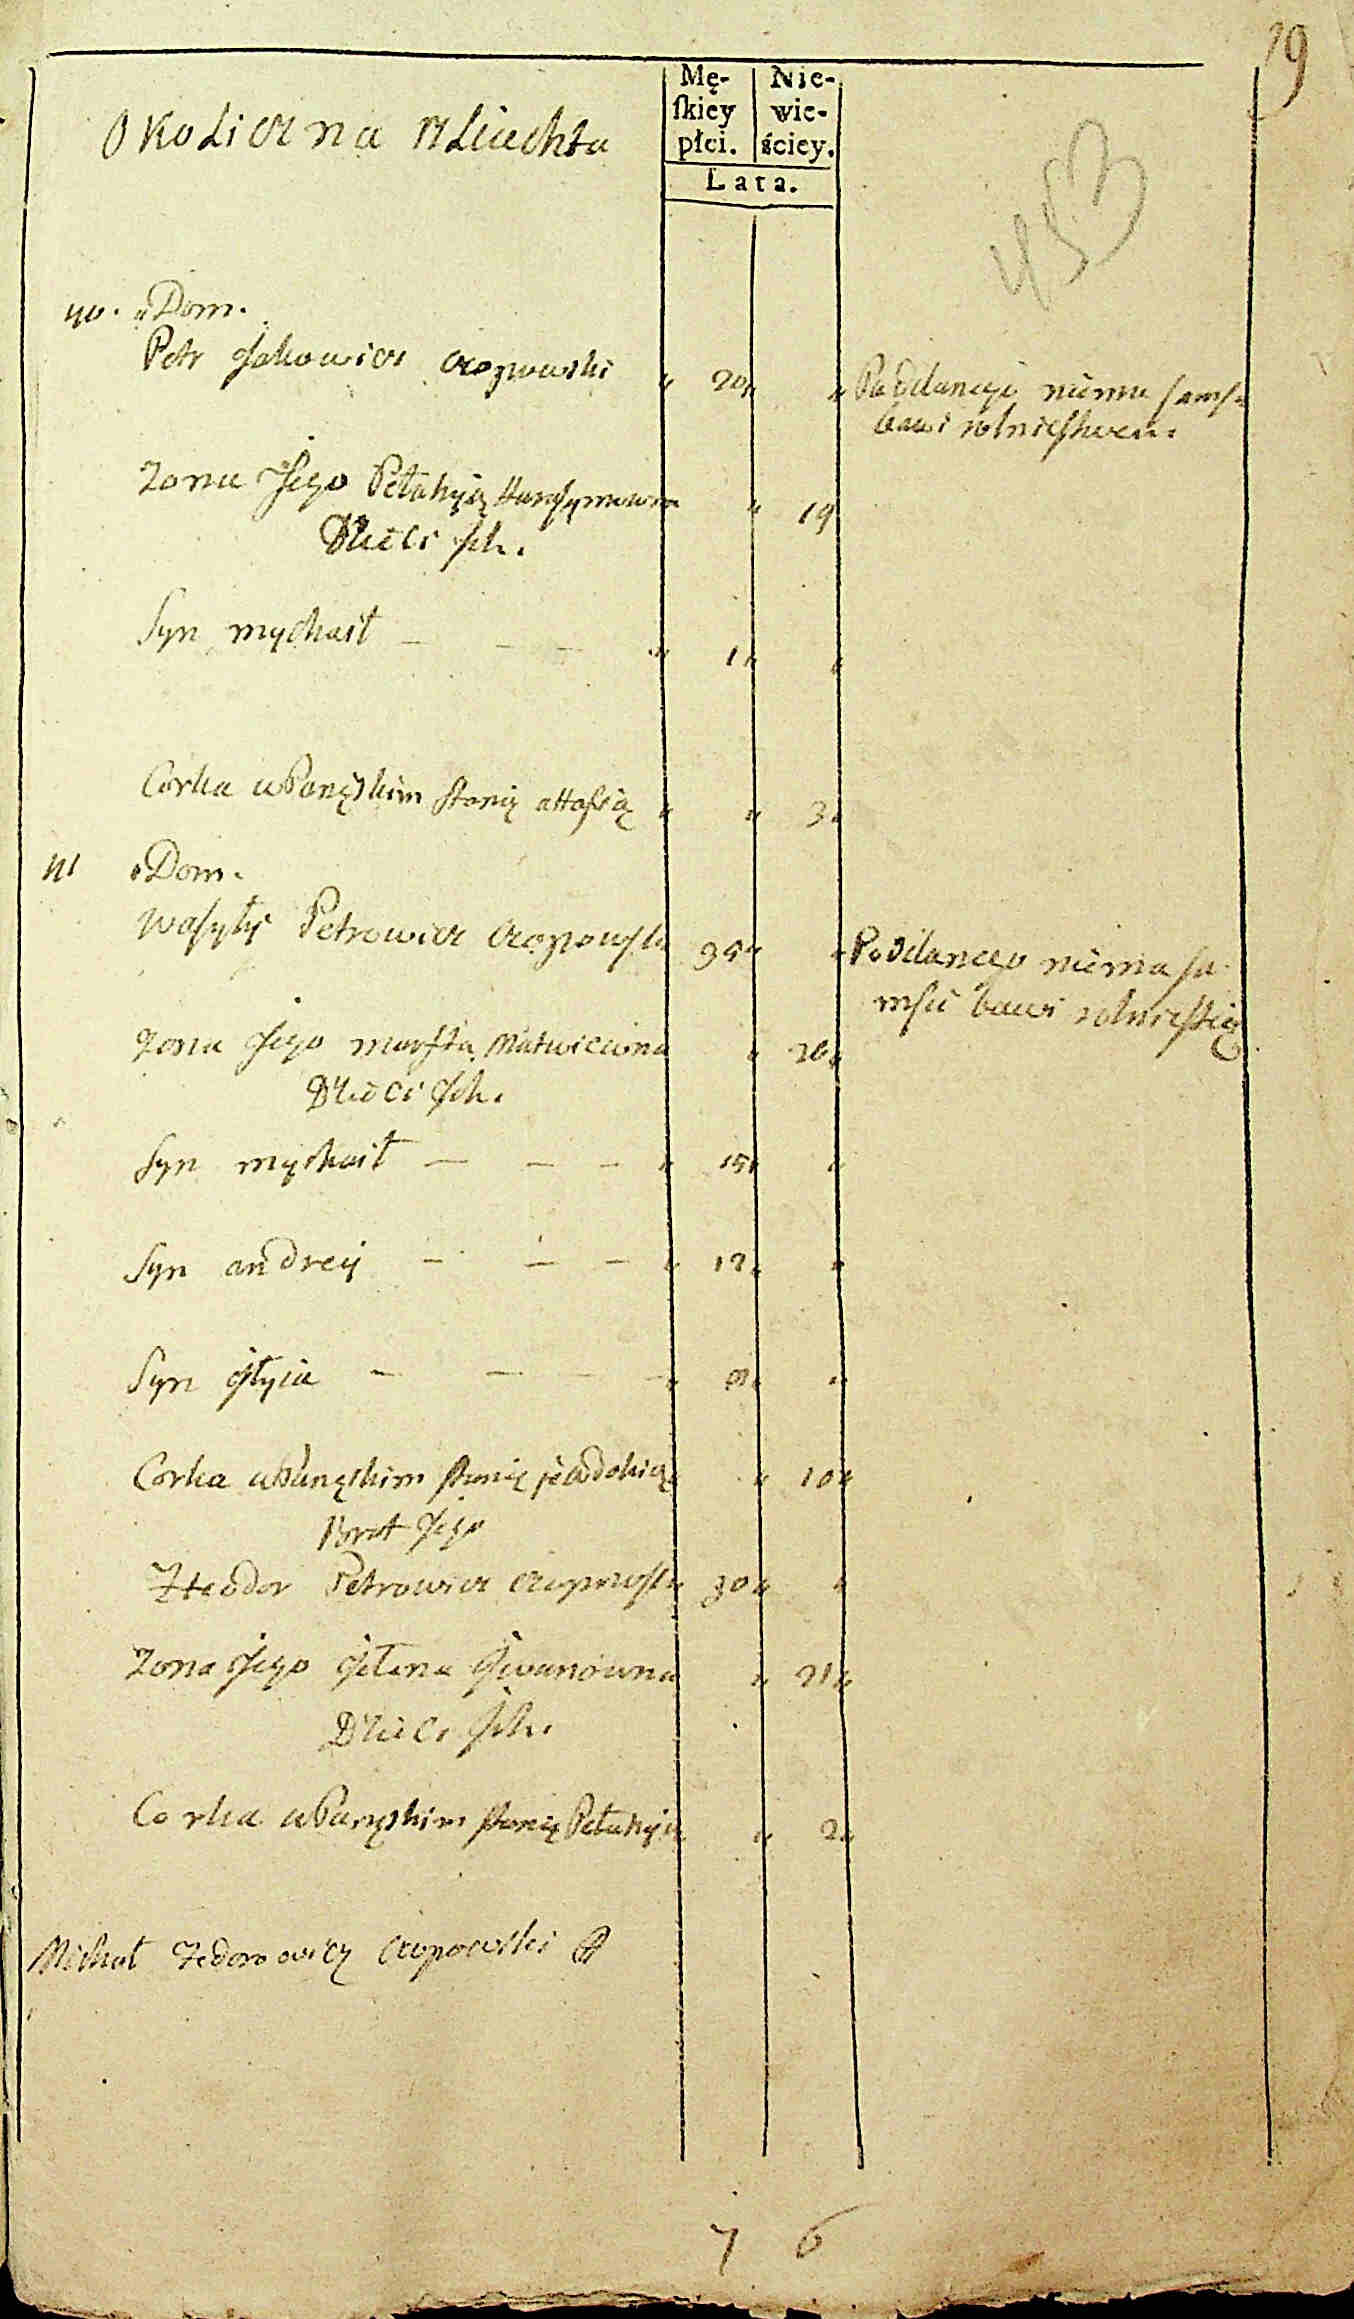 19
Okoliczna szlachta
Mę-
ſkiey
płci.
Nie-
wie-
ściey.
Lata.
453
40. Dom.
Petr Jakowicz Czopowski " 20 " "
Poddanego niema samsie
bawi rolnictwem.
Zona Jego Pełahyia " 19
Dzieci ich.
Syn mychaił — — — " 1 " "
Corka w Panęskim stanię " " 3 "
41 Dom.
Wasyłyi Petrowicz Czopowski 35 " "
Poddanego niema sa
msie bawi
Zona Jego maryia Matwiewna " 26 "
Dzieci ich.
Syn mychaił — — — " 15 " "
Syn andrey — — — " 12 " "
Syn Jłyia — — — — " "
Corka w Panęskim stanię jewdokia " 10 "
Brat Jego
Theodor Petrowicz Czopowski 30 " "
Zona Jego Jełena Jwanowna " 21 "
Dzieci ich.
Corka w Panęskim stanię Pełahyia " 2 "
Michał Fedorowicz Czopowski
7 6